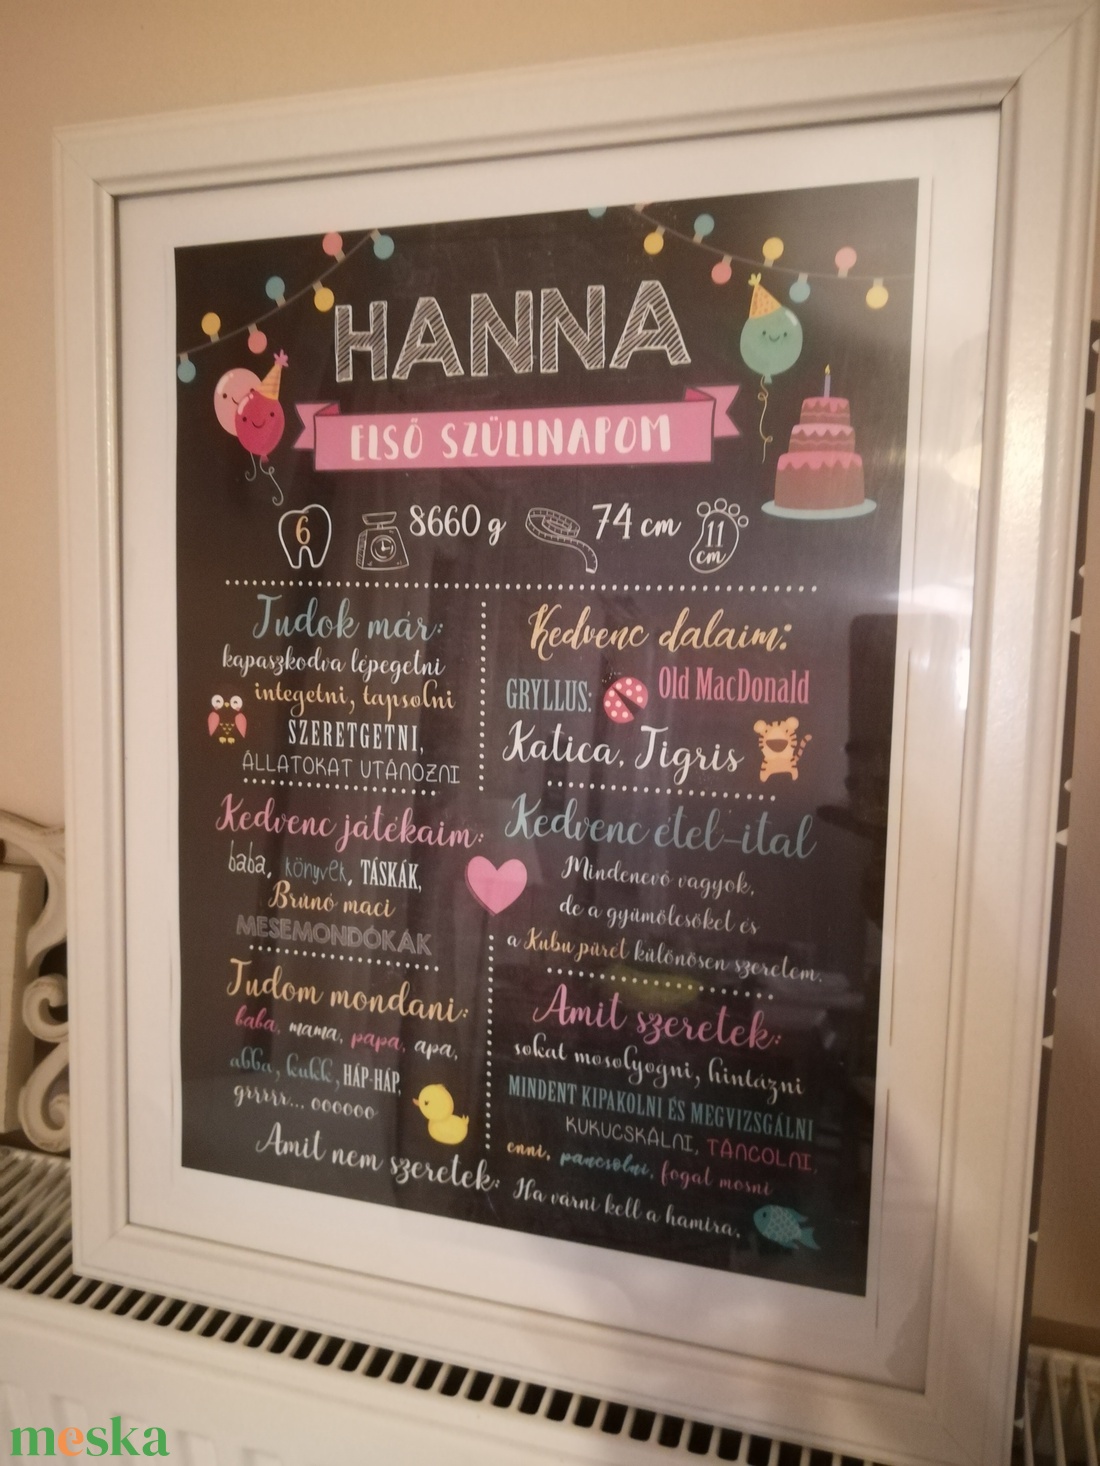 HANNA
ELSŐ SZÜLINAPOM
6
8660 g
74 cm
11
cm
Tudok már:
kapaszkodva lépegetni
integetni, tapsolni
SZERETGETNI,
ÁLLATOKAT UTÁNOZNI
Kedvenc dalaim:
GRYLLUS:
Old MacDonald
Katica, Tigris
Kedvenc játékaim:
baba, könyvek, TÁSKÁK,
Brúnó maci
MESEMONDÓKÁK
Kedvenc étel-ital
Mindenevő vagyok,
de a gyümölcsöket és
a Kubu pürét különösen szeretem.
Tudom mondani:
baba, mama, papa, apa,
abba, kukk, HÁP-HÁP,
grrrrr... oooooo
Amit szeretek:
sokat mosolyogni, hintázni
MINDENT KIPAKOLNI ÉS MEGVIZSGÁLNI
KUKUCSKÁLNI, TÁNCOLNI,
enni, pancsolni, fogat mosni
Amit nem szeretek: Ha várni kell a hamira.
meska